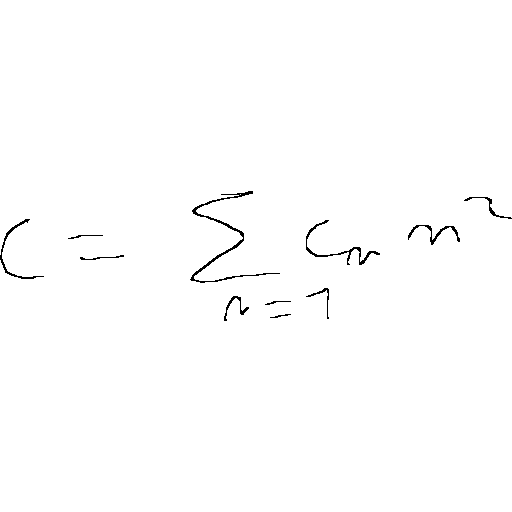 C = \sum_{n=1} c_n n^2